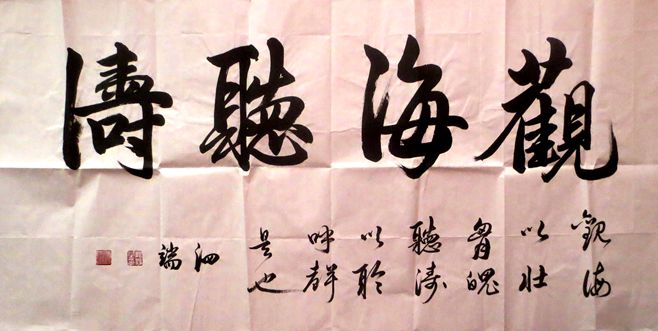 觀海聽濤
觀海
以壯
胷魄
聽濤
以聆
呼群
是也
泗
端